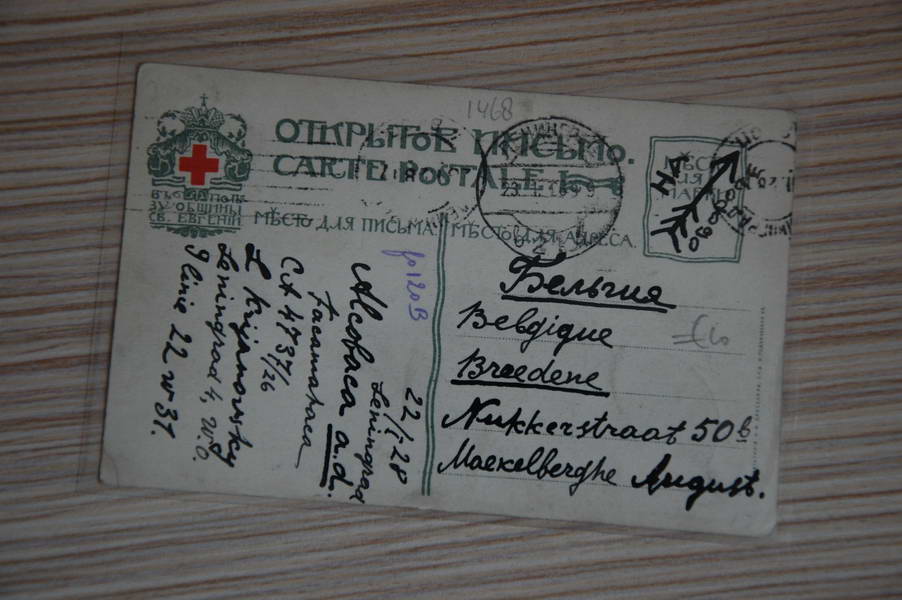 1468
ОТКРЫТОЕ ПИСЬМО.
CARTE POSTALE.
ВЪ ПОЛЬ
ЗУ ОБЩИНЫ
СВ. ЕВГЕНІИ
МѢСТО ДЛЯ ПИСЬМА
МѢСТО ДЛЯ АДРЕСА.
МѢСТО
ДЛЯ
МАРКИ
НА
Бельгия
Belgique
Breedene
Nukkerstraat 50b
Maekelberghe August.
22/I-28
Leningrad
Alcobaca a.d.
Facamataca
CA 4737/26
L Krijanowsky
Leningrad 4, W.O.
9 linie 22 w 31.